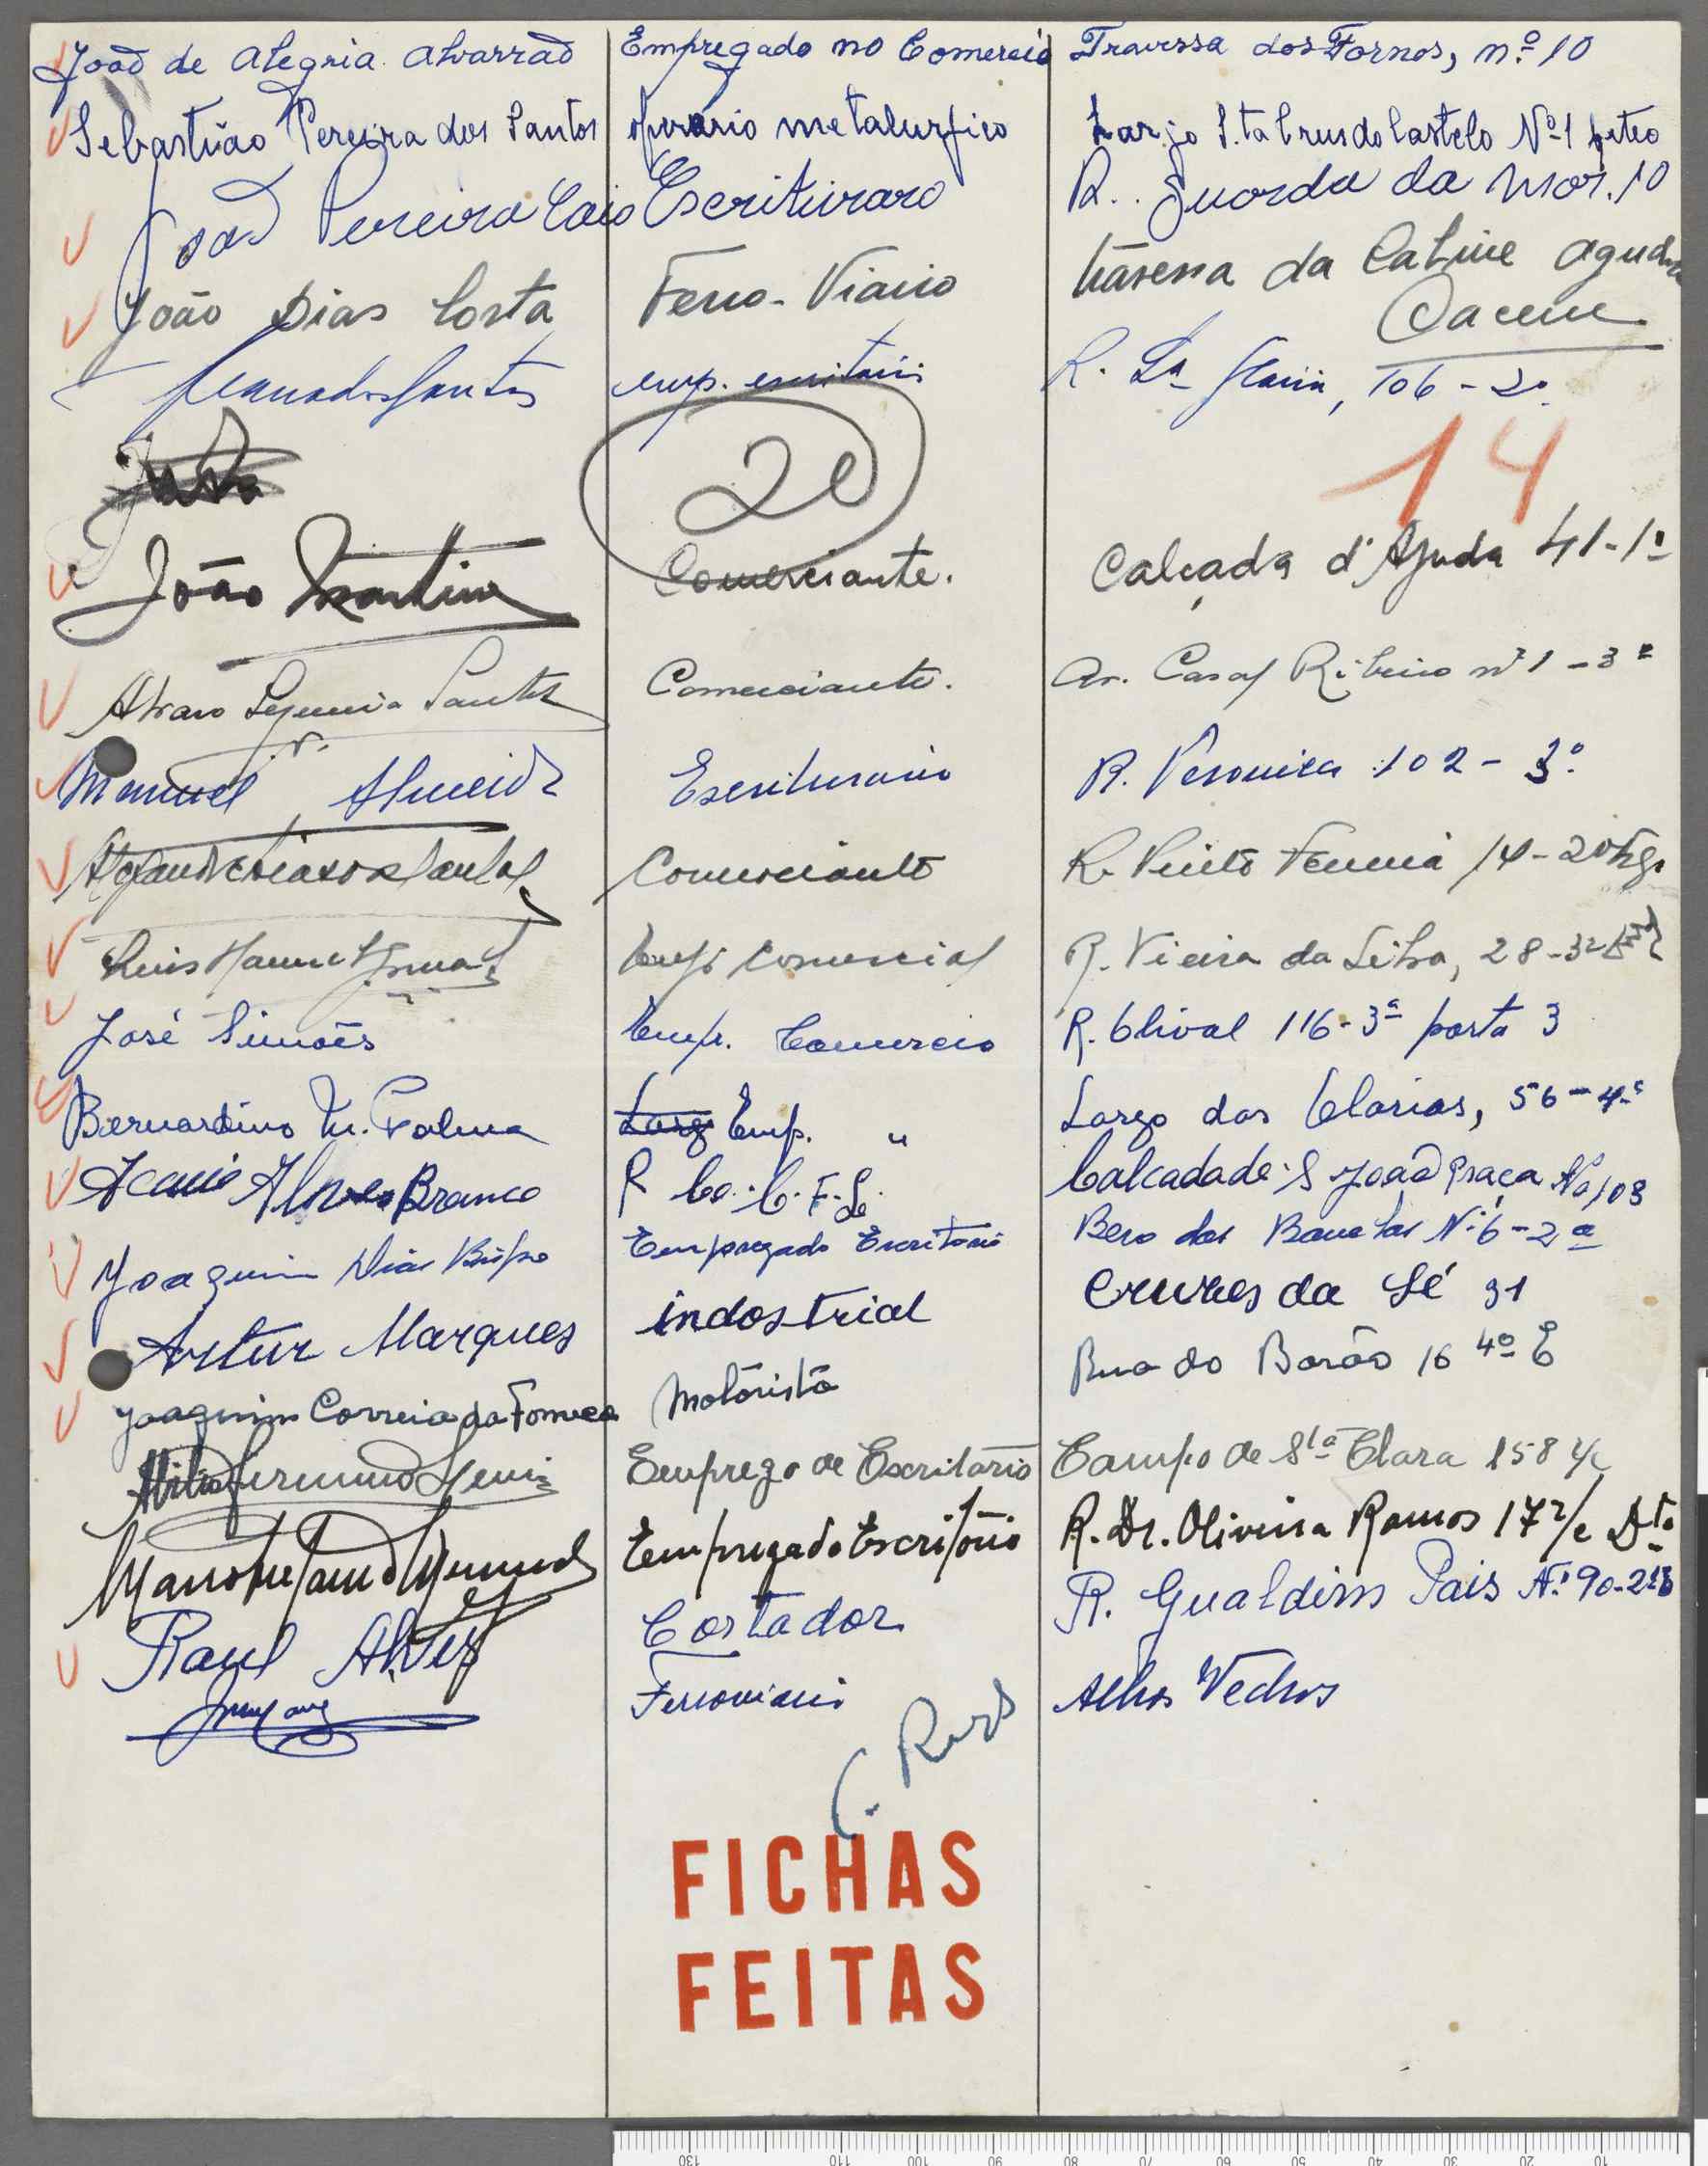 João de Alegria Alvarrão Empregado no Comercio Travessa dos Fornos, nº 10
Sebastião Pereira dos Santos operario metalurgico Largo S.ta Crus do Castelo Nº 1 pateo
João Pereira Caio Escriturario R. Guarda da Mor. 10
João Dias Costa Ferro-Viario travessa da
Cacem
Santos emp. escritorio R. Da Gloria, 106-2º
20
14
João Martins Comerciante. Calçada d'Ajuda 41-1º
Alvaro Santos Comerciante. Av. Casal Ribeiro nº 1-3º
Manuel Almeida Escriturario R. Veronica 102-3º
Comerciante R. 14-2º
Luis Manuel Emp. Comercial R. Vieira da Silva, 28-3º
José Simões Emp. Comercio R. Olival 116-3º porta 3
Bernardino M. Palma Larg Emp. " Largo das Olarias, 56-4º
Alves Branco R Co. C. F. L. Calcada de S João Praça Nº 108
de
Joaquim Dias Bispo Empregado Escritorio Beco dos Nº 6-2º
Artur Marques indostrial Cruzes da Sé 31
Joaquim Correia da Fonseca Motorista Rua do Barão 16 4º E
Emprego de Escritorio Campo de Sta Clara 158 r/c
Empregado Escritório R. Dr. Oliveira Ramos 17 r/c Dto
Raul Alves Cortador R. Gualdim Pais Nº 90-2º
Ferroviario Alhos Vedros
C. Reis
FICHAS
FEITAS
130 110 100 90 80 70 60 50 40 30 20 10